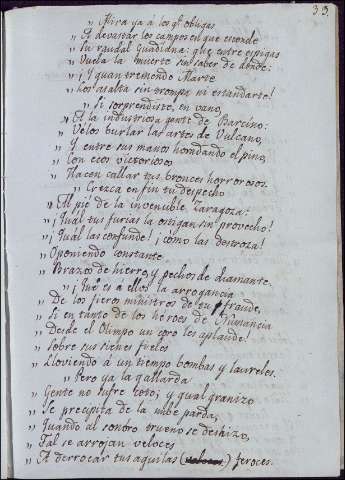 33.
„ Mira ya á los q.e obligas
„ Á devastar los campos en que esconde
„ Su raudal Guadiana: que entre espigas
„ Vuela la muerte sin saber de adonde:
„ ¡Y quan tremendo Marte
„ Los asalta sin trompa ni estandarte!
„ Si sorprendiste, en vano,
„ Á la industriosa gente de Barcino:
„ Vélos burlar las artes de Vulcano,
„ Y entre sus manos horadando el pino,
„ Con ecos victoriosos
„ Hacen callar tus bronces horrorosos.
„ Crezca en fin tu despecho
„ Al pié de la invencible Zaragoza:
„ ¡Qual tus furias la ostigan sin provecho!
„ ¡Qual las confunde! ¡como las destroza!
„ Oponiendo constante
„ Brazos de hierro, y pechos de diamante.
„ ¿Qué es á ellos la arrogancia
„ De los fieros ministros de tu fraude,
„ Si en tanto de los héroes de Numancia
„ Desde el Olimpo un coro les aplaude!
„ Sobre sus sienes fieles
„ Lloviendo á un tiempo bombas y laureles.
„ Pero ya la gallarda
„ Gente no sufre coto; y qual granizo
„ Se precipita de la nube parda,
„ Quando al sonoro trueno se deshizo,
„ Tal se arrojan veloces
„ Á derrocar tus aquilas (veloces) feroces.